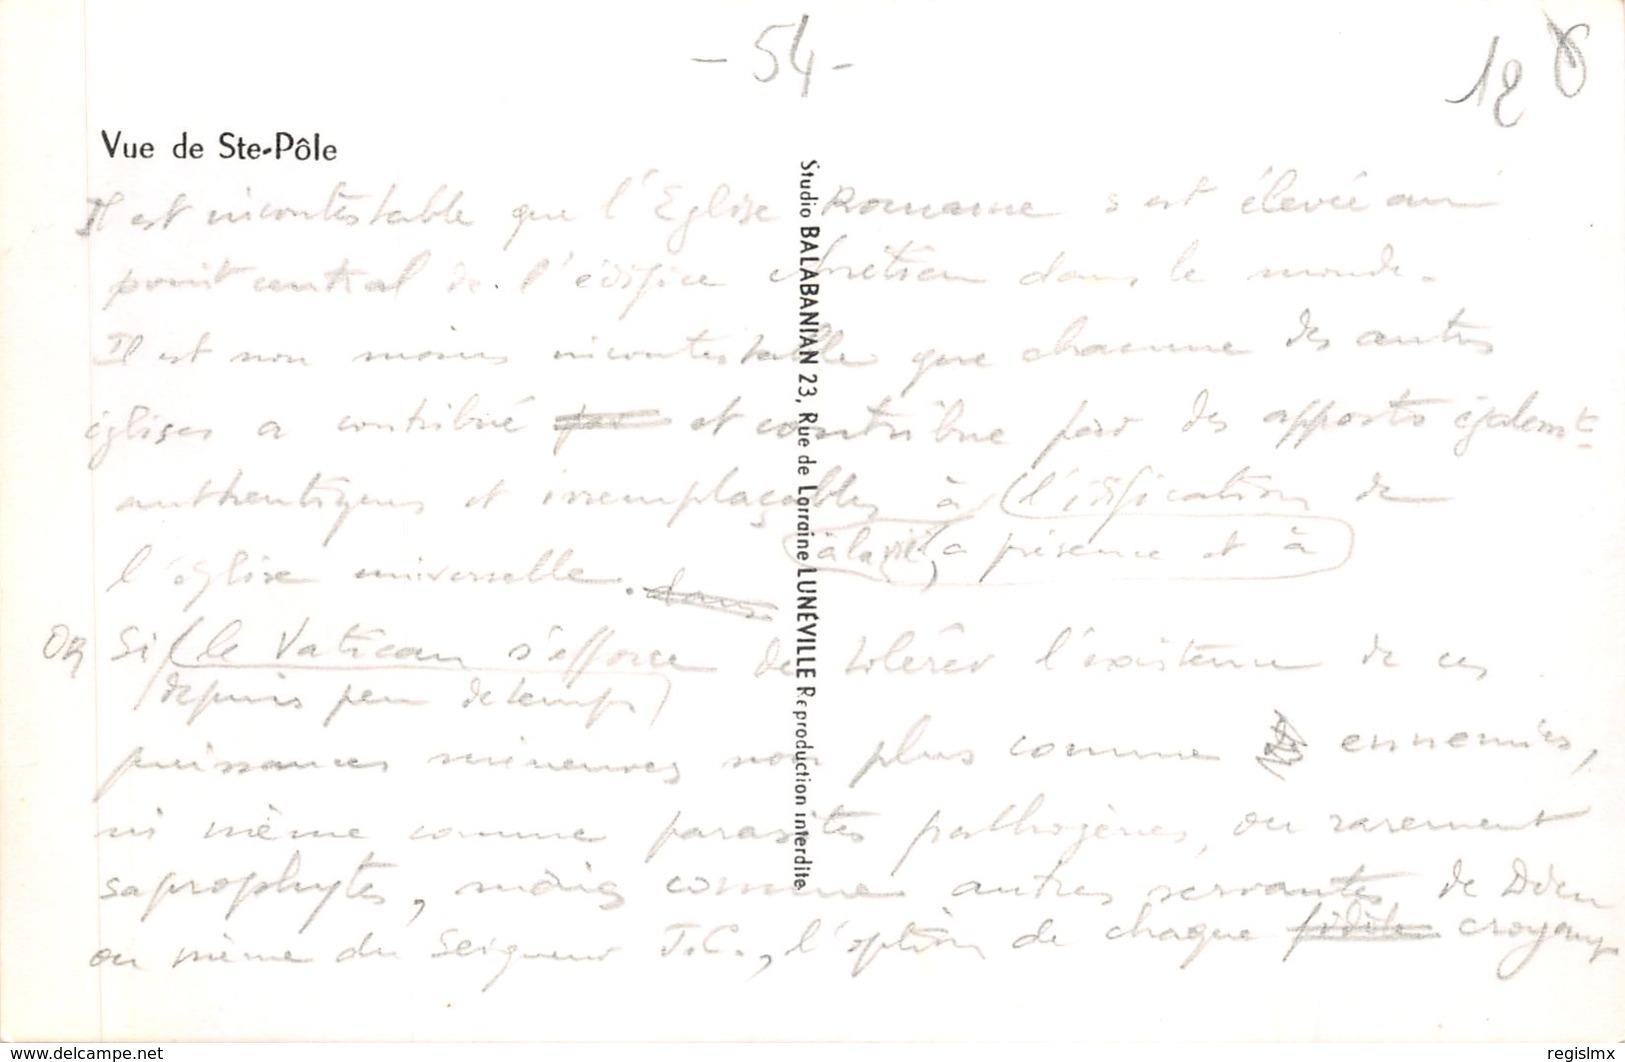 - 54 -
12
Vue de Ste-Pôle
Il est incontestable que l'Eglise Romaine s'est élevée au
point central de l'édifice chrétien dans le monde.
Il est non moins incontestable que chacune des autres
églises a contribué et contribue par des apports égalemt
authentiques et irremplaçables à l'édification de
à la vie, la présence et à
l'église universelle.
OR Si le Vatican s'efforce de tolérer l'existence de ces
depuis peu de temps
puissances mineures non plus comme ennemies,
ni même comme parasites pathogènes, ou rarement
saprophytes, mais comme autres servantes de Dieu
ou même du Seigneur J.C., l'option de chaque croyant
Studio BALABANIAN 23, Rue de Lorraine LUNÉVILLE Reproduction interdite
www.delcampe.net
regislmx